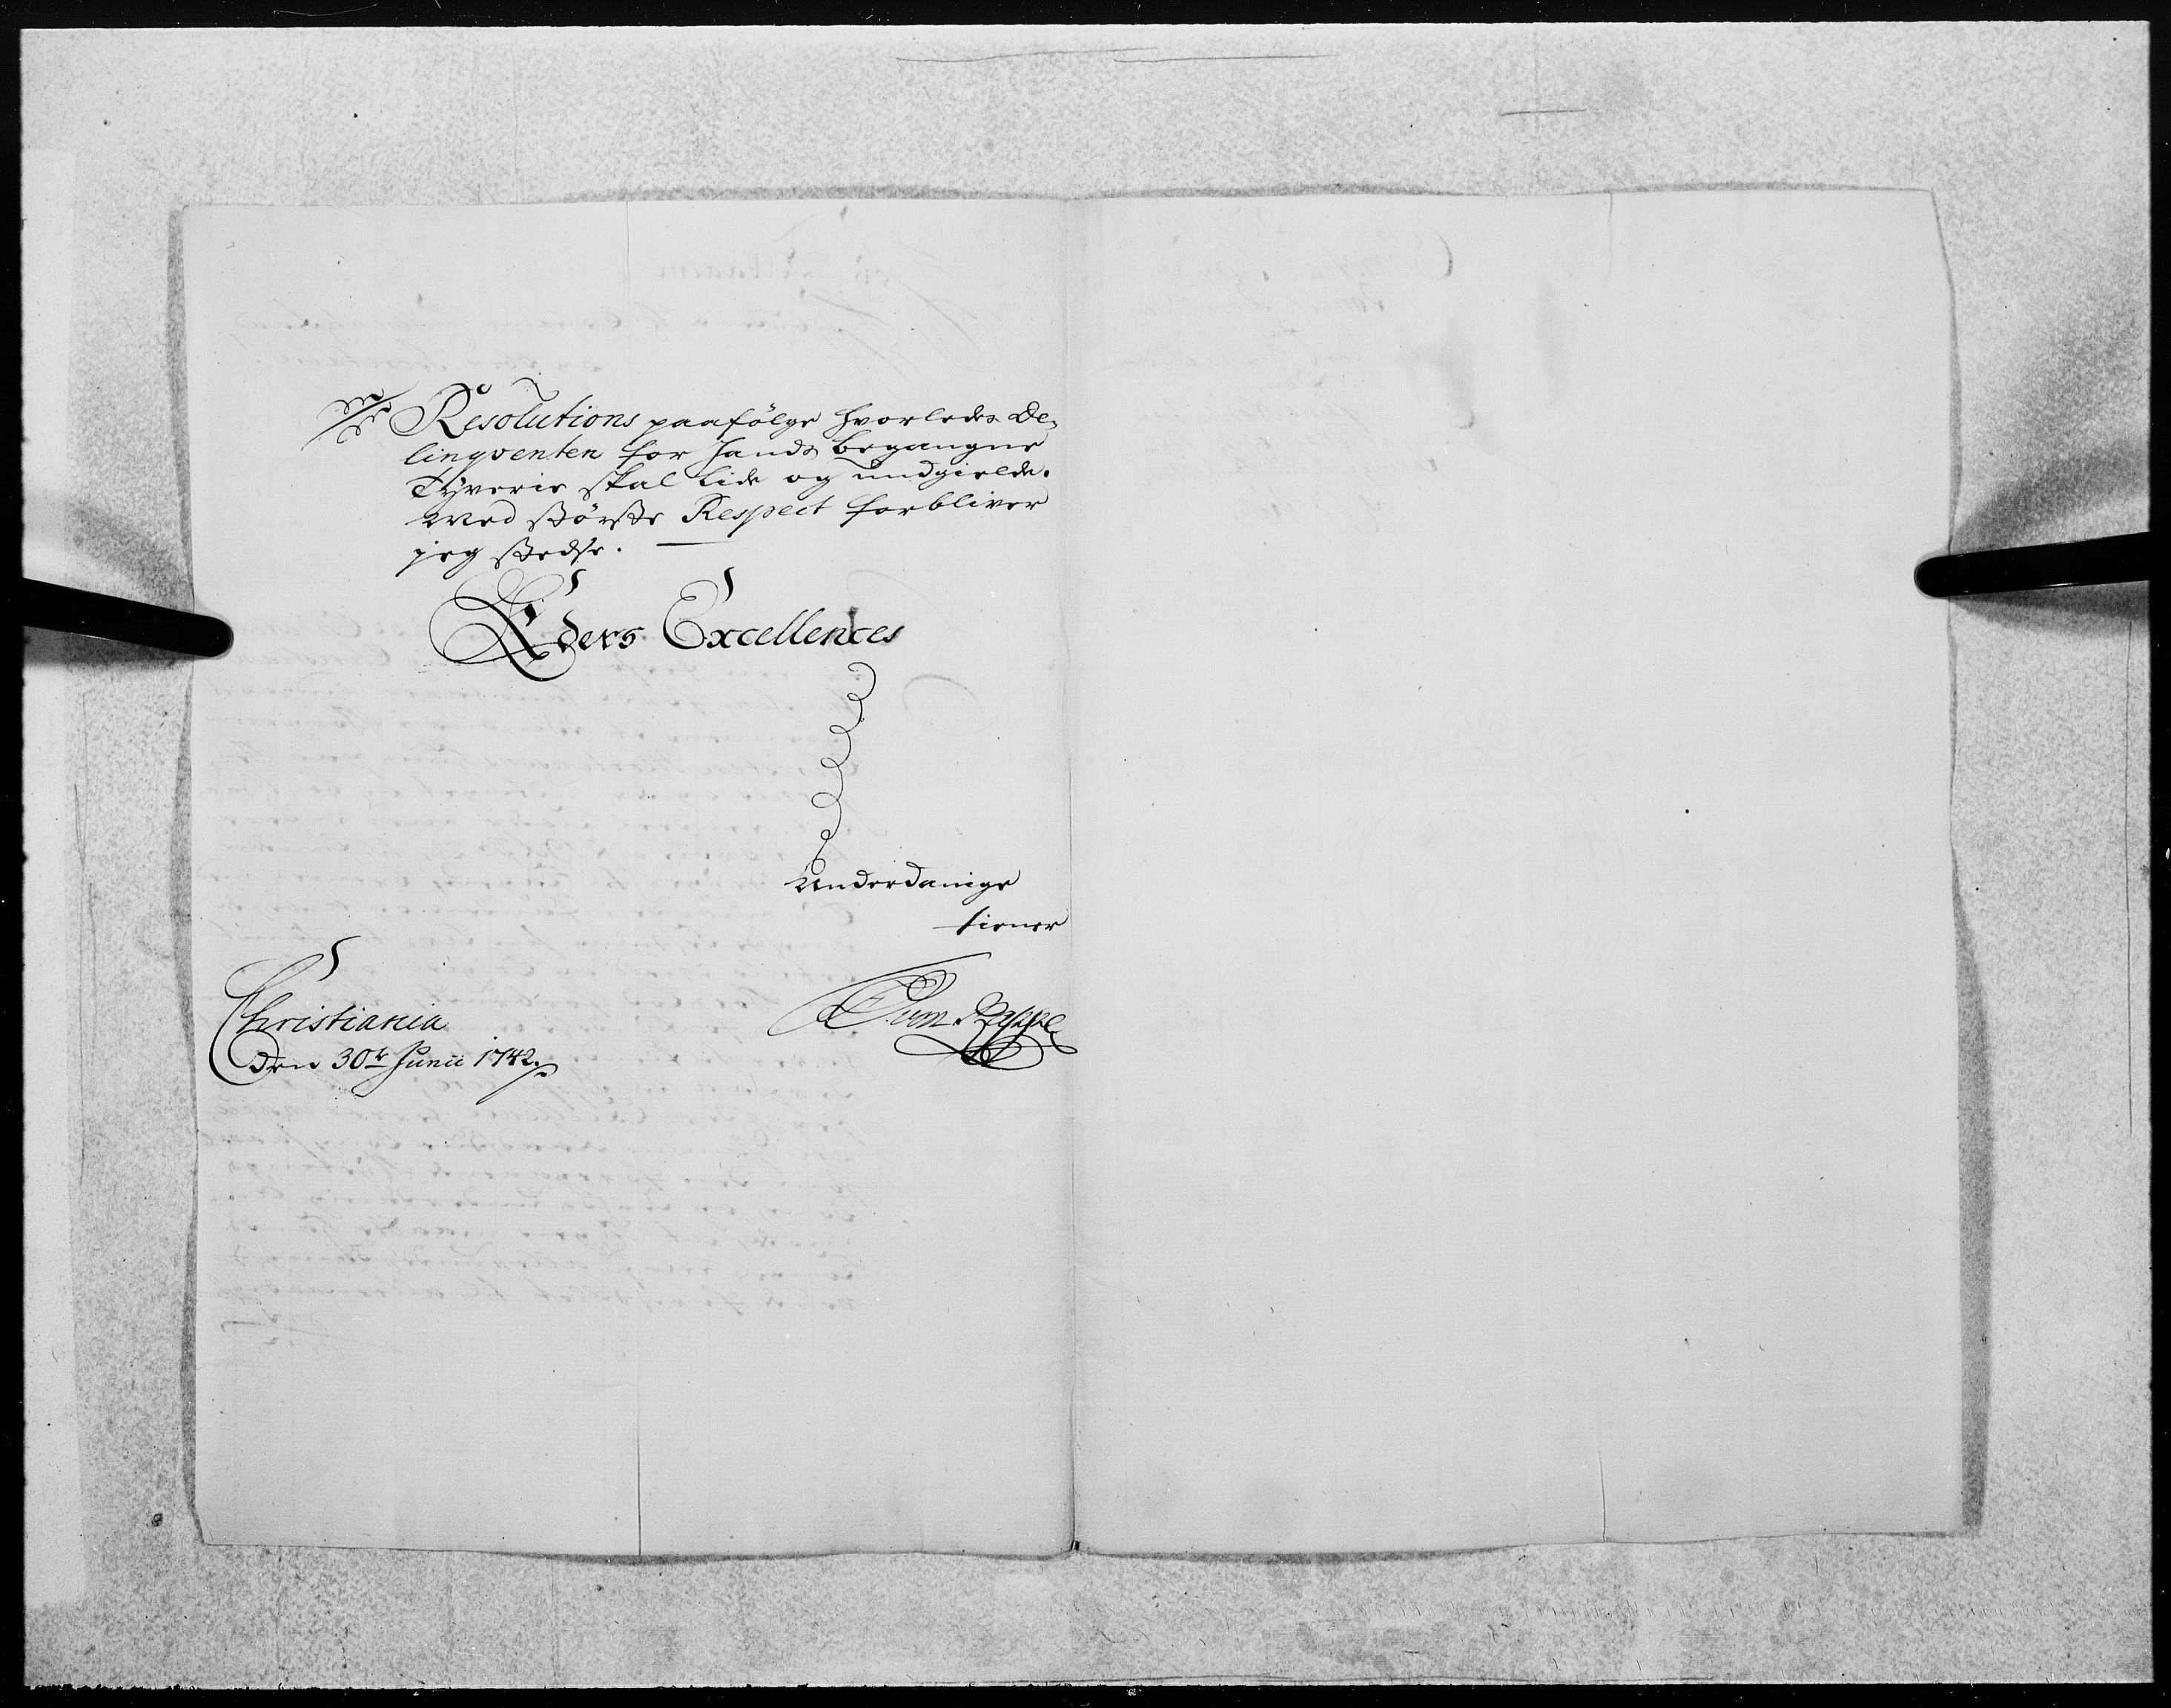 Resolutions paafölge hvorledes De-
linqventen for hands begangne
Tyverie skal lide og undgielde.
Med störste Respect forbliver
jeg stedse.
Eders Excellences
Underdanige
tiener
Christiania
den 30te Junii 1742.